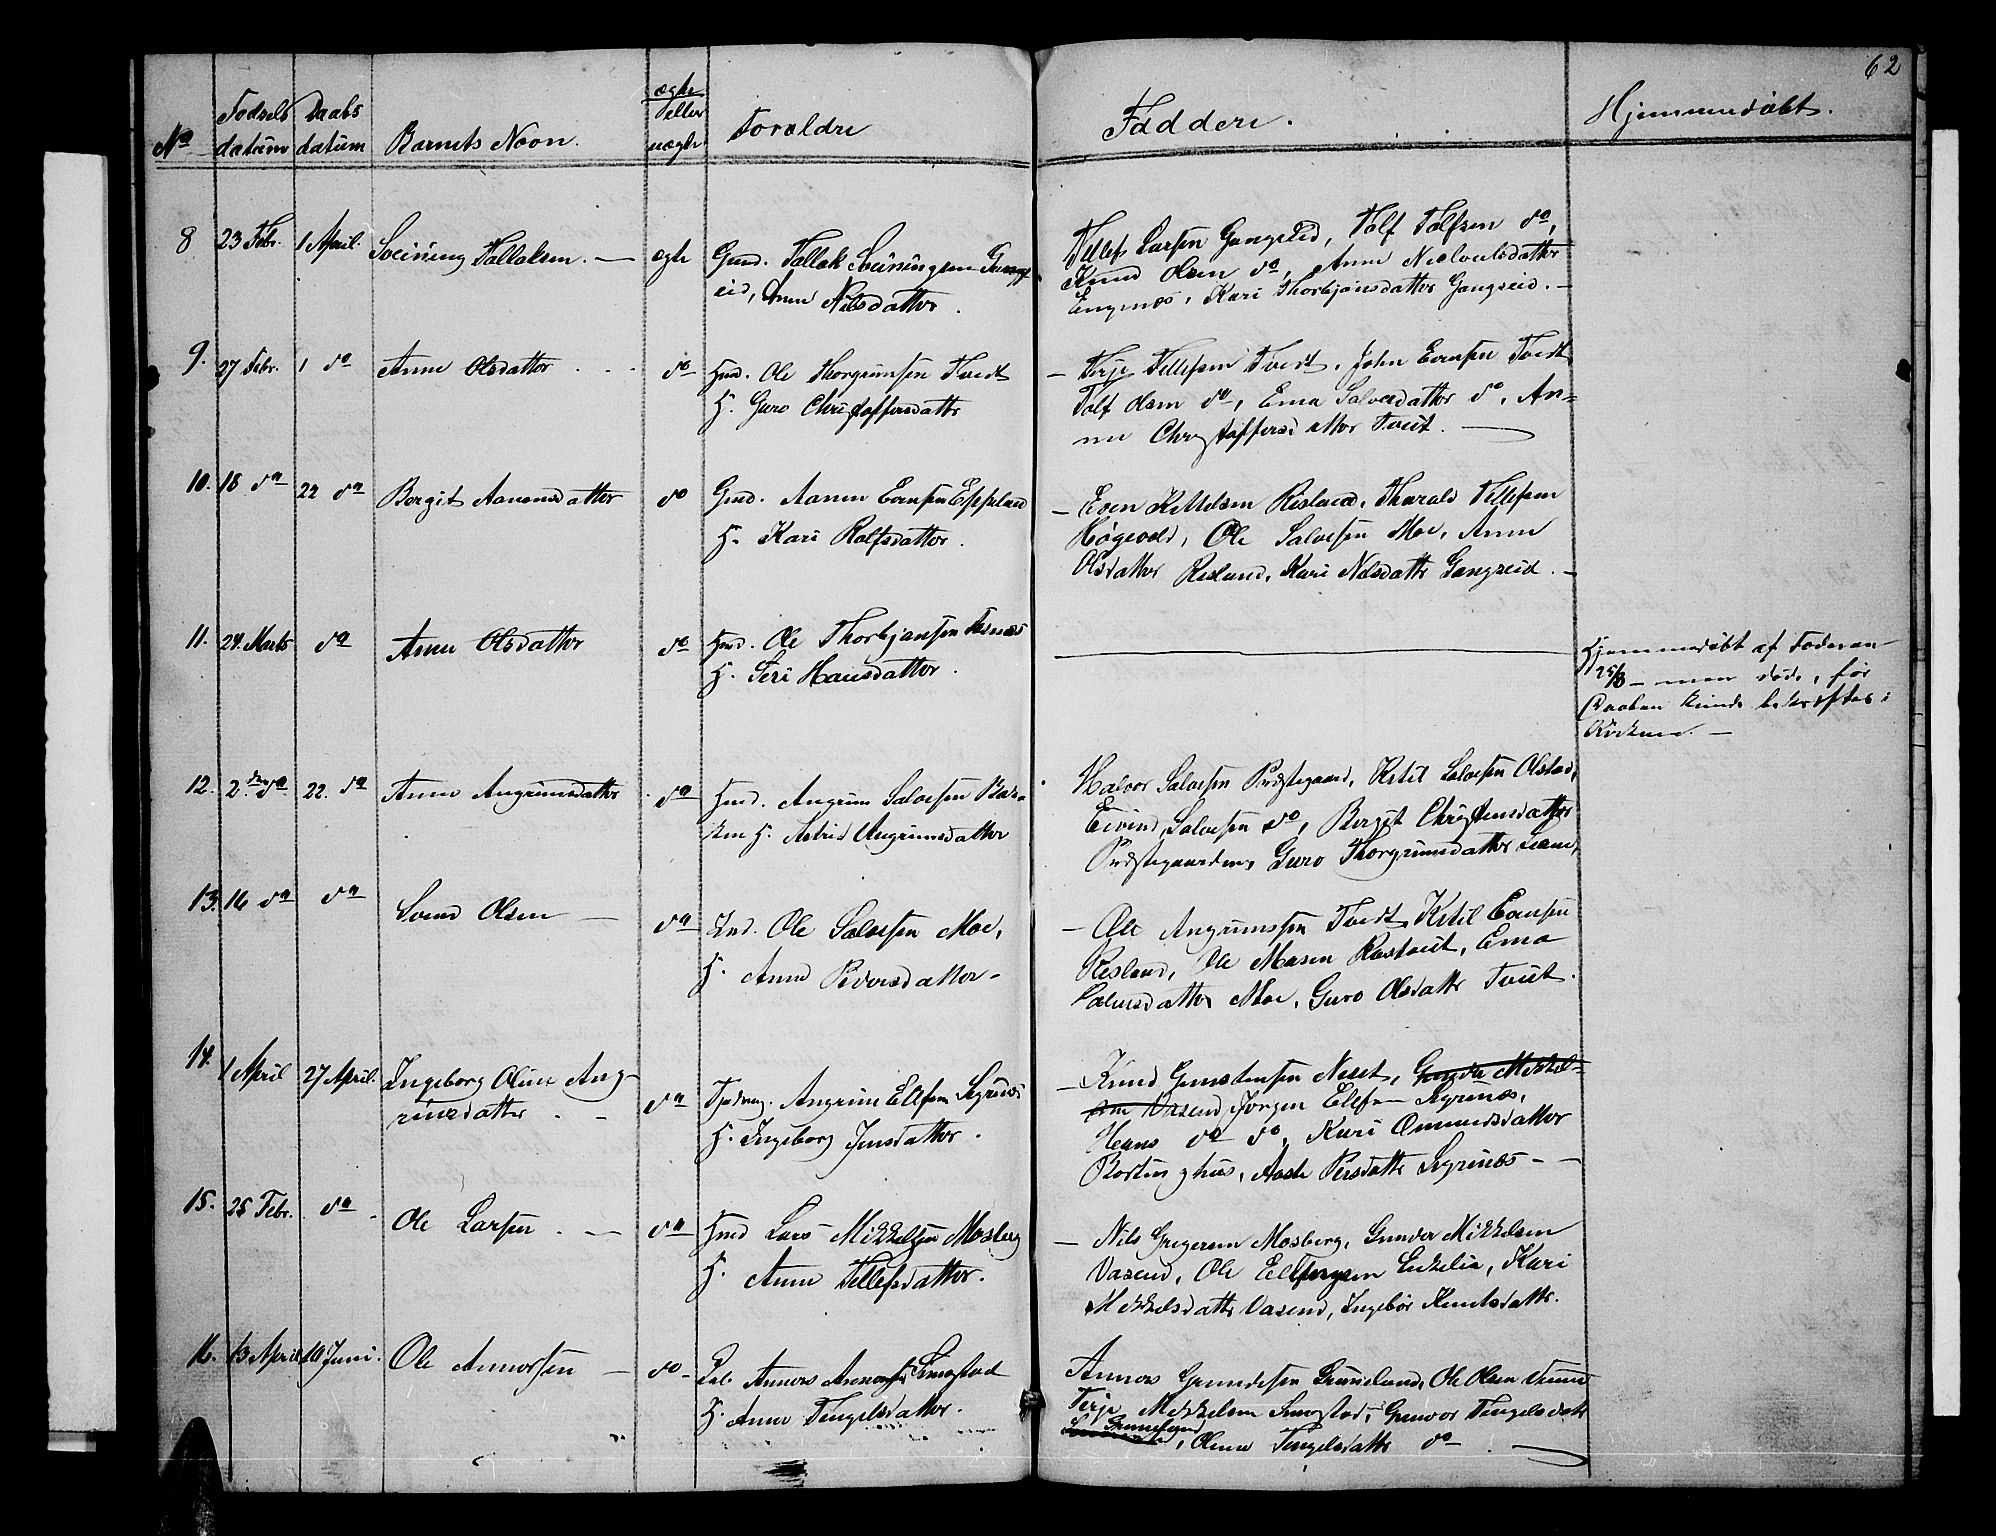 62
No
Fødsels datum
Daabs datum
Barnets Navn.
ægte eller uægte
Foreldre
Faddere.
Hjemmedøbt.
8 23 Febr. 1 April. Sveining Tallaksen. — ægte Gmd. Tallak Sveiningsen Gangs
eid, Anne Nilsdatter.
Tellef Larsen Gangseid, Tolf Tolfsen do,
Knud Olsen do, Anne Neslouls datter
Engenes, Kari Thorbjønsdatter Gangseid. —
9. 27 Febr. 1 do Anne Olsdatter . . . do Gmd. Ole Thorgrimsen Tvedt
H. Guro Christoffersdatter
— Terje Tellefsen Tvedt, John Evensen Tvedt
Tolf Olsen do, Ema Salvesdatter do, An=
ne Christoffersdatter Tveit. —
10. 18 do 22 do Bergit Aanensdatter do Gmd. Aanen Evensen Eppeland
H. Kari Rolfsdatter.
— Even Kittelsen Risland, Tharald Tellefsen
Høgevold, Ole Salvesen Moe, Anne
Olsdatter Risland, Kari Nilsdatter Gangseid. —
11. 24. Marts do Anne Olsdatter do Gmd. Ole Thorbjønsen
H. Siri Hansdatter.
Hjemmedøbt af Faderen
25/3 — men døde, før
Daaben kunde bekræftes i
Kirken. —
12. 2den do 22. do Anne Angrimsdatter do Gmd. Angrim Salvesen Bak=
ken H. Astrid Angrimsdatter
Halvor Salvesen Præstegaard, Ketil Salvesen Olstad,
Eivind Salvesen do, Bergit Christensdatter
Præstegaarden, Guro Thorgrimsdatter
13. 16 do do Svend Olsen — do Ind. Ole Salvesen Moe,
H. Anne Pedersdatter —
— Ole Angrimsen Tvedt, Ketil Evensen
Risland, Ole Masen Rostveit, Ema
Salvesdatter Moe, Guro Olsdatter Tveit.
14. 1 April 27 April. Ingeborg Oline Ang-
rimsdatter . — do Angrim Ellefsen Lyrenes
H. Ingeborg Jensdatter.
— Knud Gunstensen Neset, Gunder Mikkel=
sen Vasend Jørgen Ellefsen Lyrenes,
Hans do do, Kari Ommundsdatter
Kortinghus, Aaste Persdatter Lyrenes — —
15. 25 Febr. do Ole Larsen . — do Gmd Lars Mikkelsen Mosberg
H. Anne Tellefsdatter.
— Nils Gregersen Mosberg, Gunder Mikkelsen
Vasend, Ole Ellingsen Lukelia, Kari
Mikkelsdatter Vasend, Ingebor Knutsdatter.
16. 13 April 10 Juni. Ole Annorsen — do Annors Arenorsen Smostad
H. Anne Tengelsdatter.
Annors Gundesen Gruneland, Ole Olsen
Terje Mikkelsen Smostad, Gunvor Tengelsdatter
Gruneland, Oline Tengelsdatter do. —